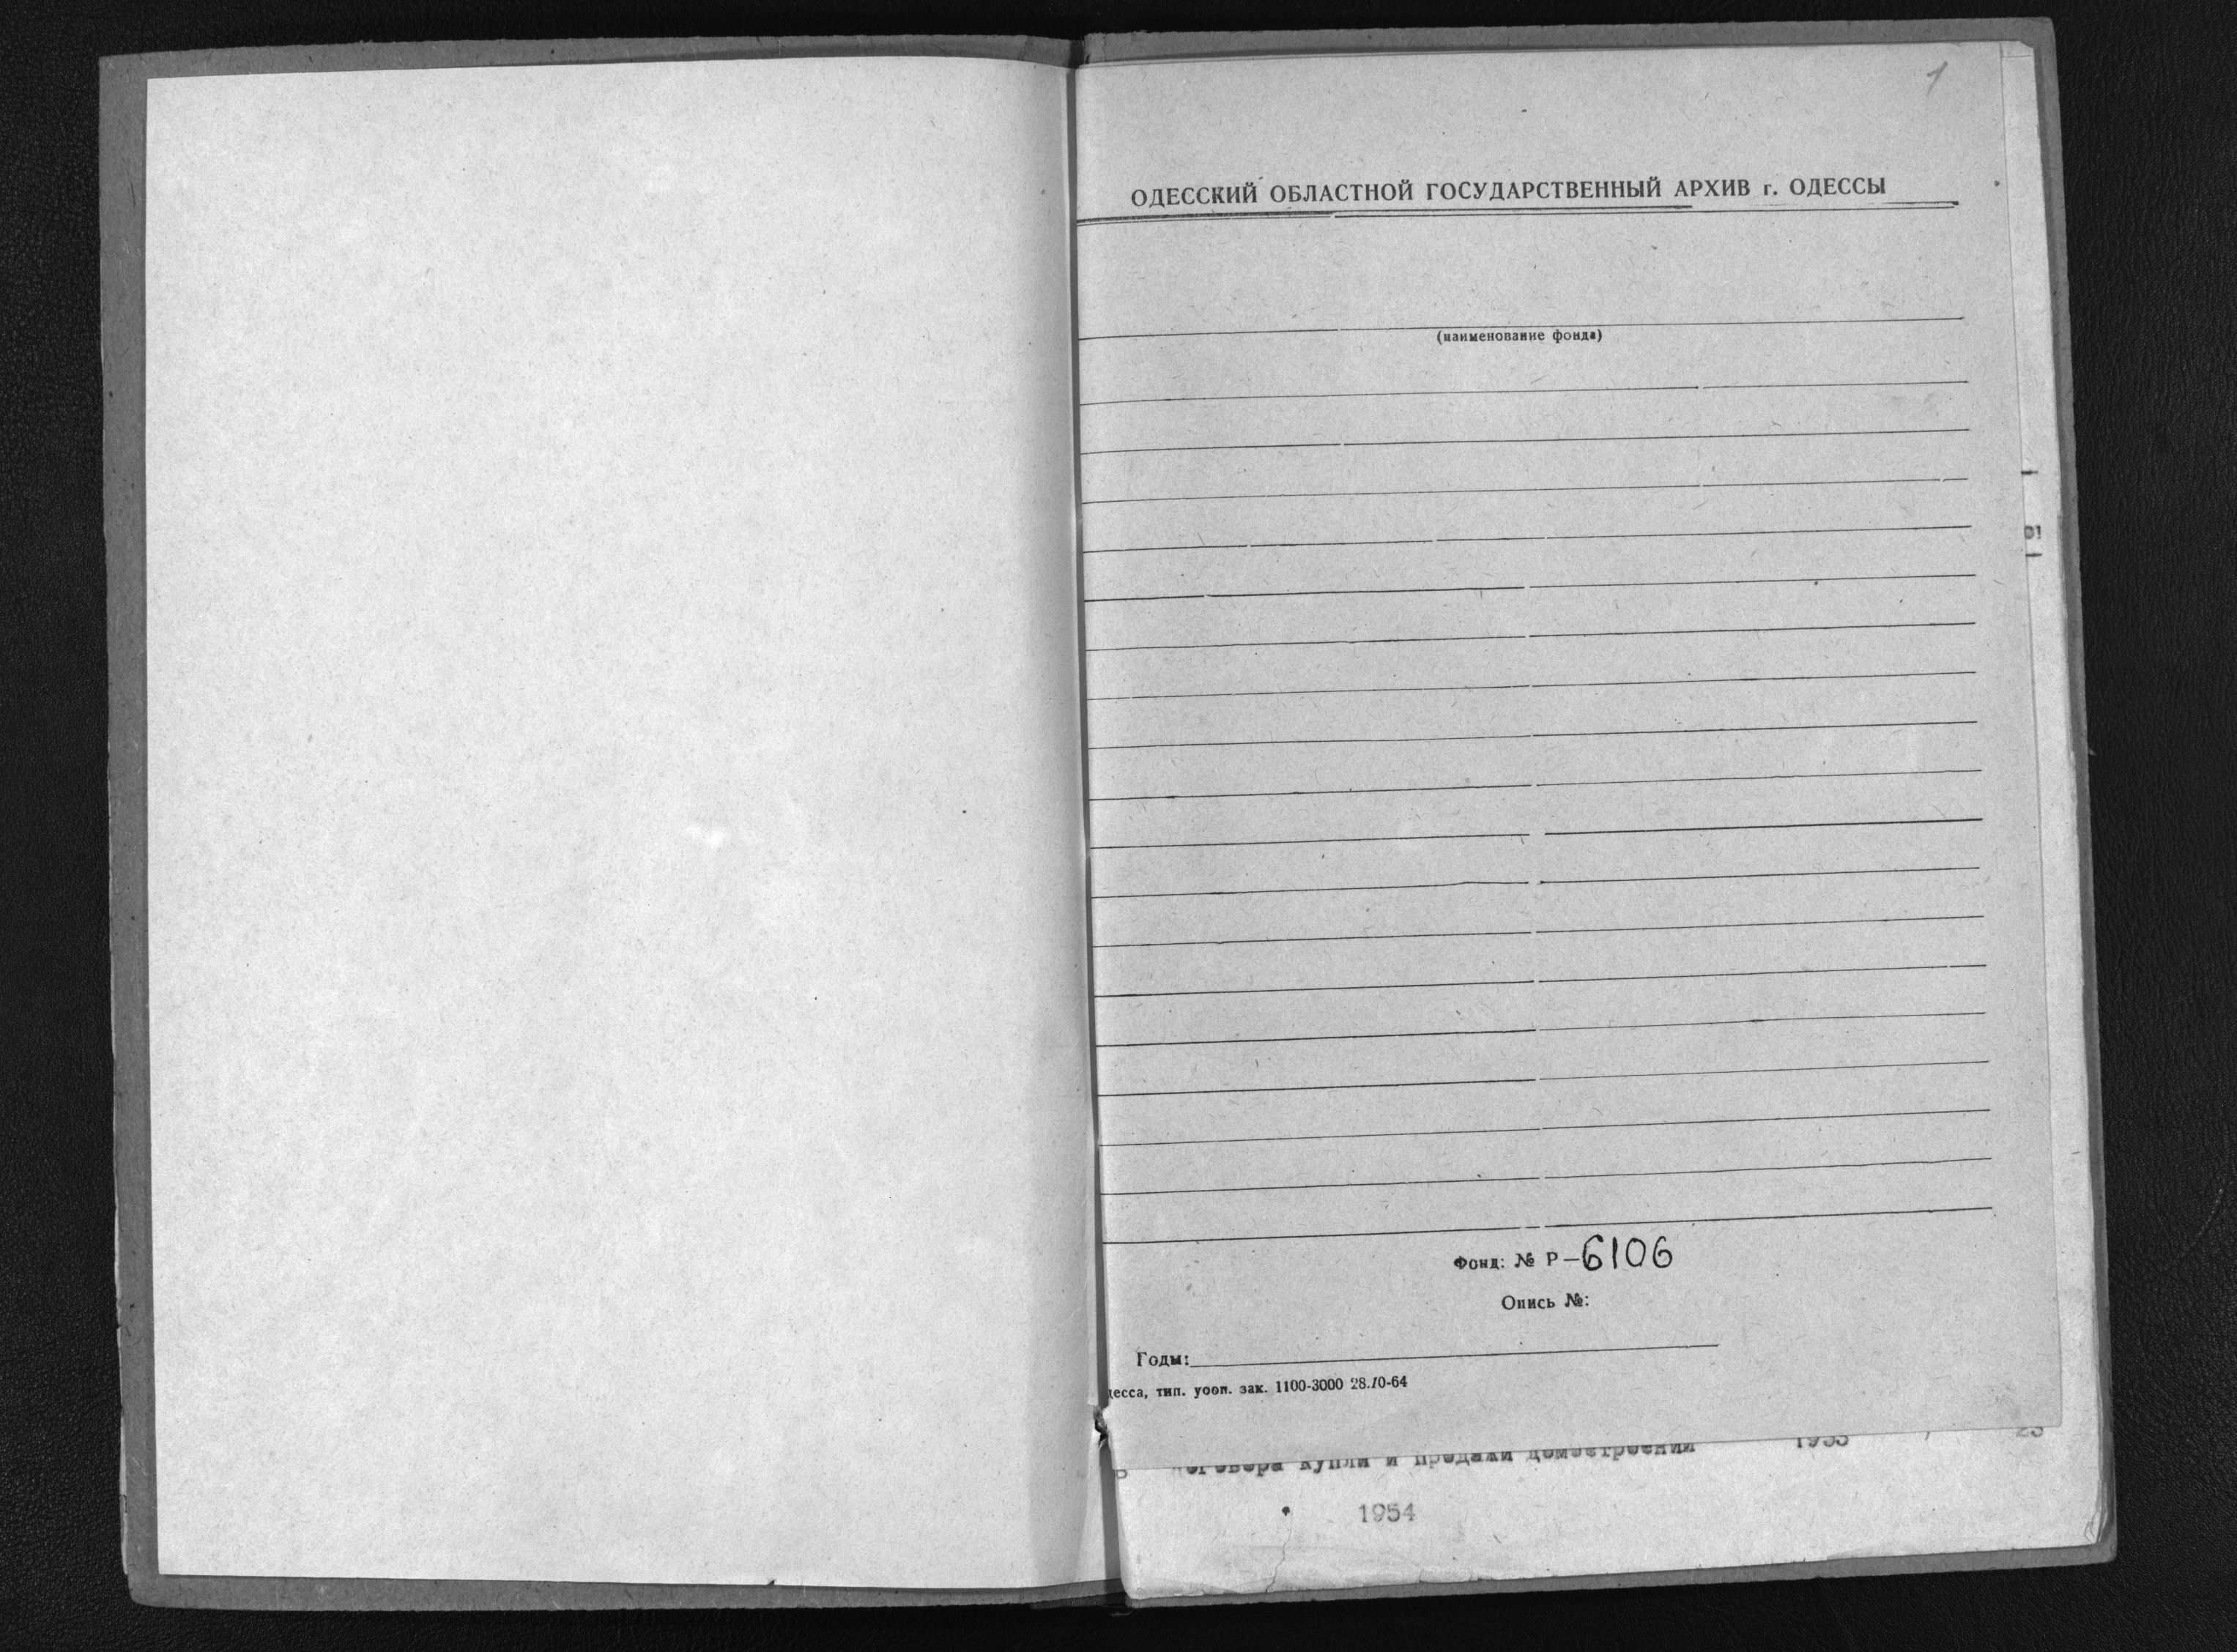 1
ОДЕССКИЙ ОБЛАСТНОЙ ГОСУДАРСТВЕННЫЙ АРХИВ г. ОДЕССЫ
(наименование фонда)
Фонд: № Р-6106
Опись №:
Годы:
десса, тип. уооп. зак. 1100-3000 28.10-64
договора купли и продажи домостроений 1953 23
1954